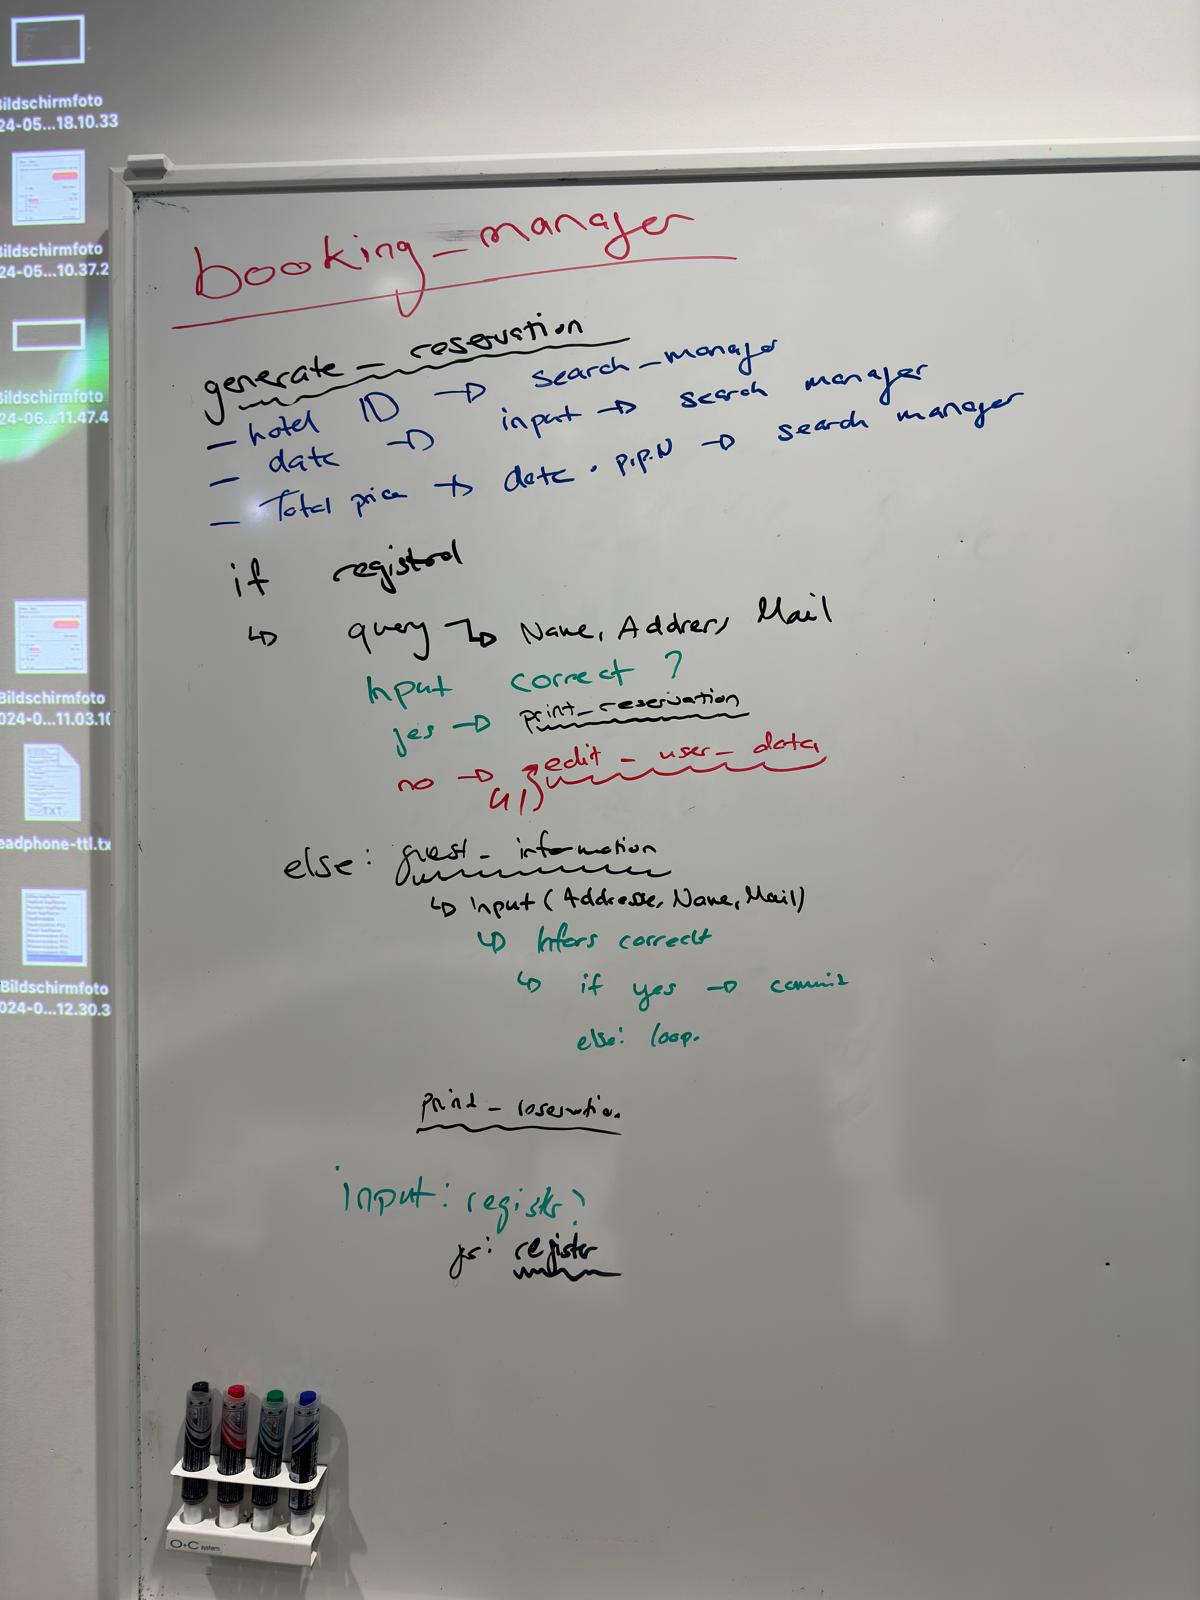 Bildschirmfoto
24-05...18.10.33
Bildschirmfoto
24-05...10.37.2
Bildschirmfoto
24-06...11.47.4
Bildschirmfoto
024-0...11.03.10
TXT
eadphone-ttl.tx
Bildschirmfoto
024-0...12.30.3
booking_manager
generate_reservation
- hotel ID → search_manager
- date → input → search manager
- Total price → date · p.p.N → search manager
if registred
↳ query ↳ Name, Address, Mail
Input correct ?
yes → print_reservation
no → edit_user_data
else: guest_information
↳ Input (Addresse, Name, Mail)
↳ Infors correct
↳ if yes → commit
else: loop.
print_reservation
input: register?
yes: register
O+C system